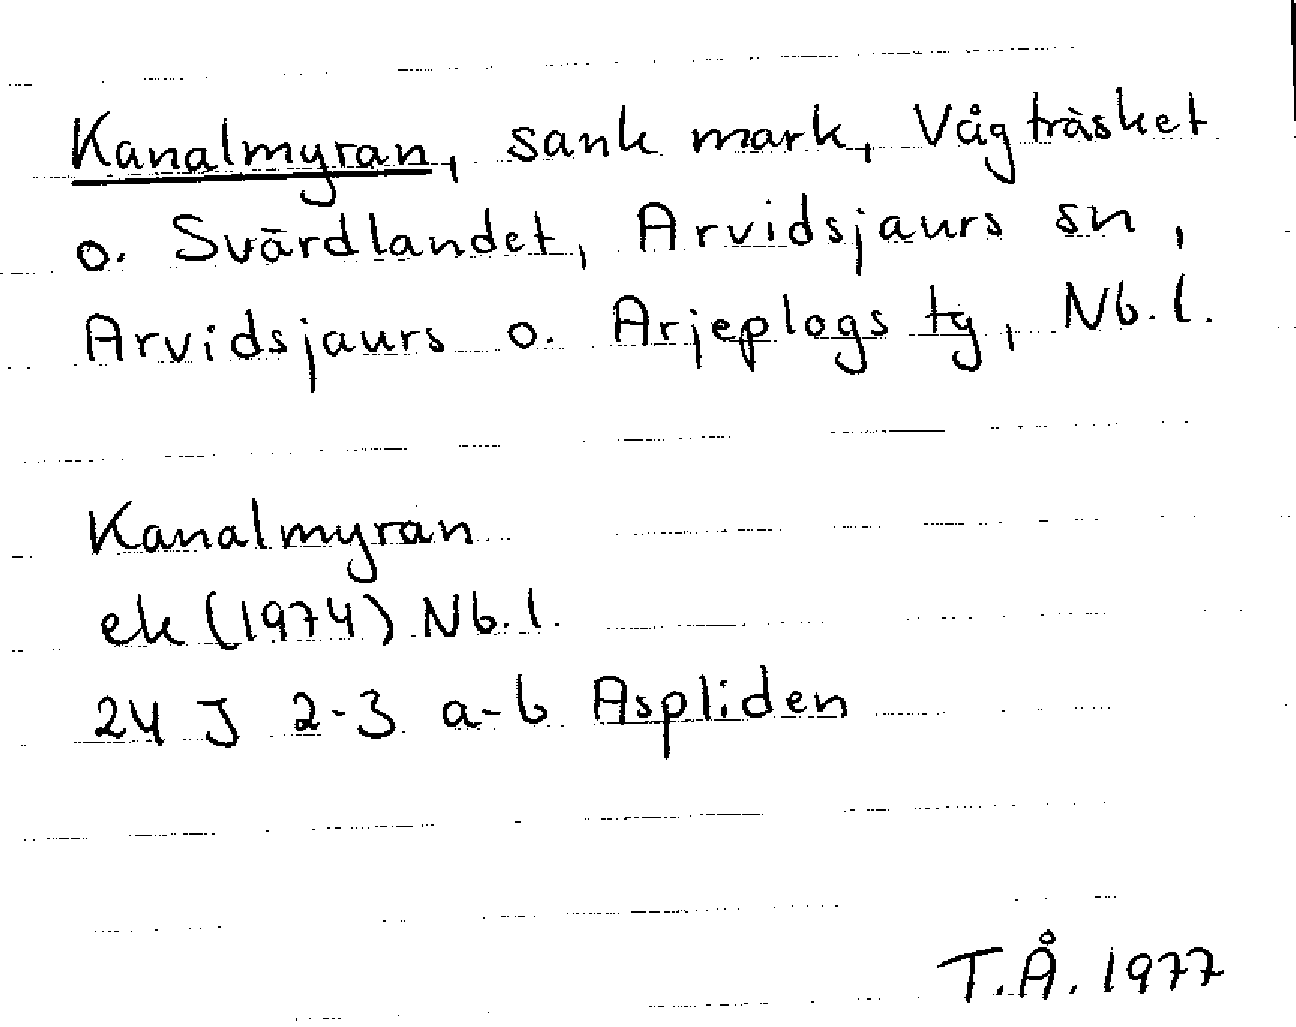 Kanalmyran, sank mark, Vågträsket
o. Svärdlandet, Arvidsjaurs sn,
Arvidsjaurs o. Arjeplogs tg, Nb.l.
Kanalmyran
ek (1974) Nb.l.
24 J 2-3 a-b Aspliden
T.Å. 1977